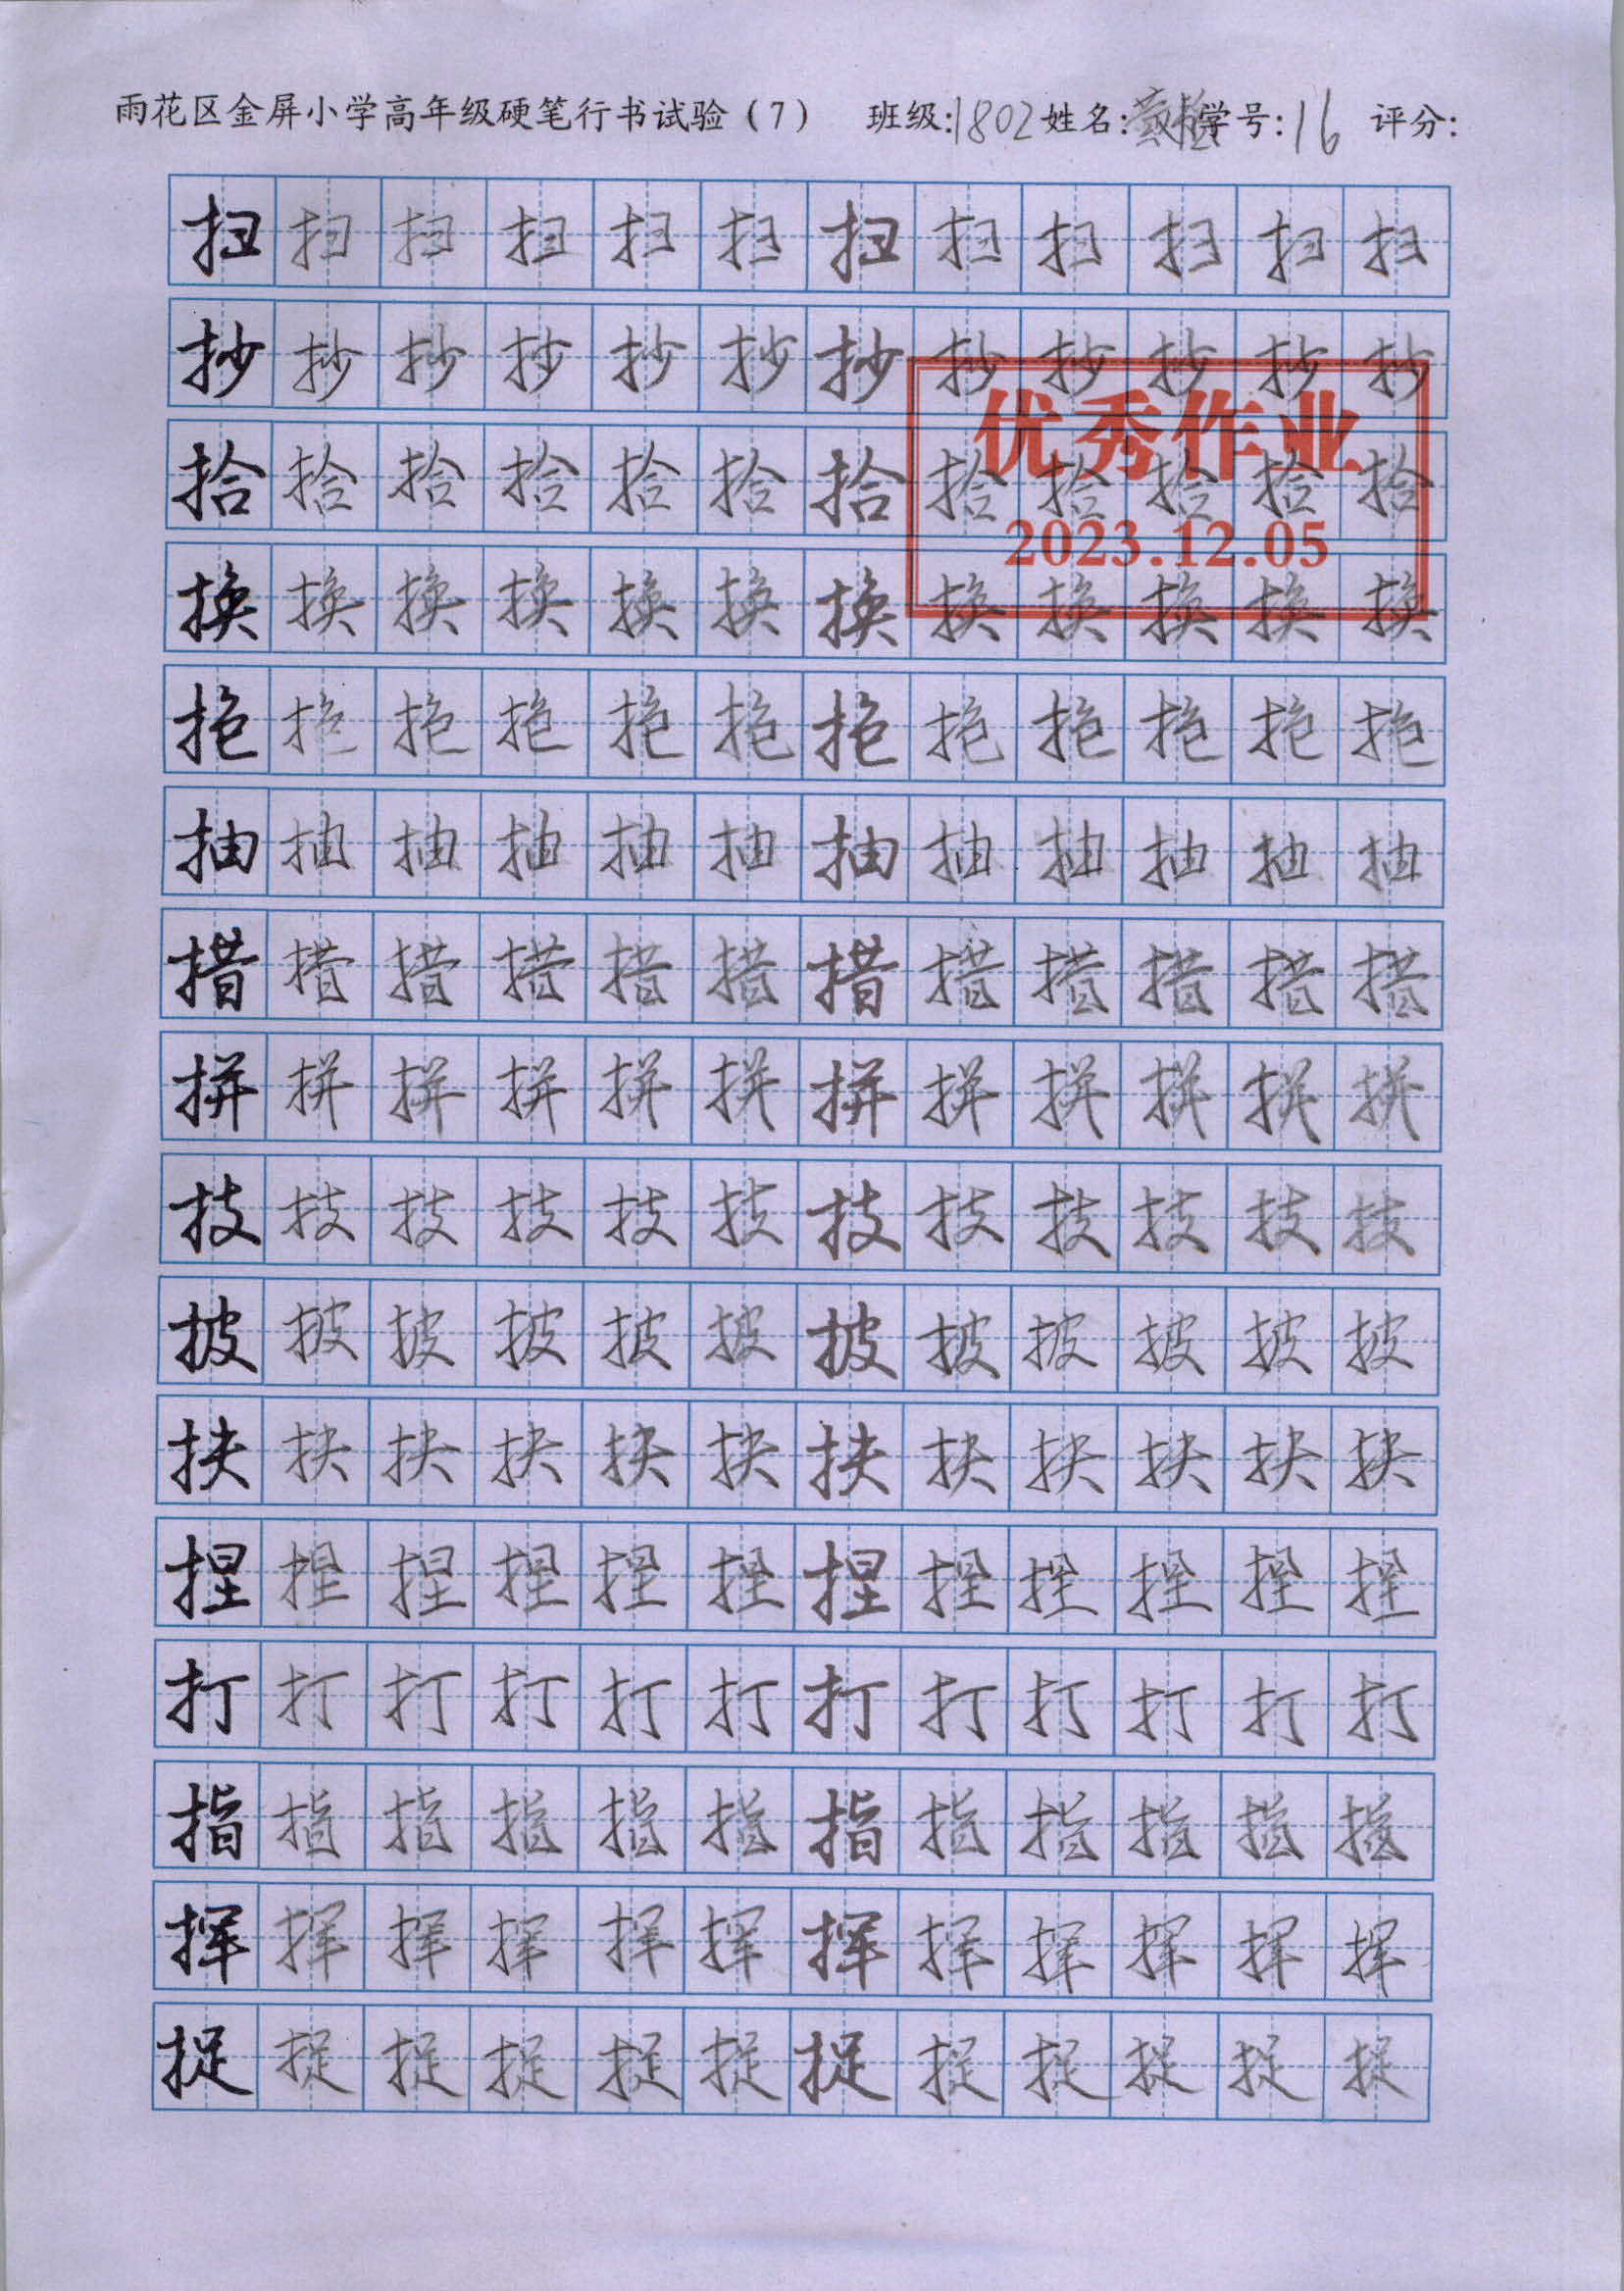 雨花区金屏小学高年级硬笔行书试验（7） 班级:1802 姓名: 学号:16 评分:
扫扫扫扫扫扫扫扫扫扫扫扫
抄抄抄抄抄抄抄抄抄抄抄抄
优秀作业
拾拾拾拾拾拾拾拾拾拾拾拾
2023.12.05
换换换换换换换换换换换换
抱抱抱抱抱抱抱抱抱抱抱抱
抽抽抽抽抽抽抽抽抽抽抽抽
措措措措措措措措措措措措
拼拼拼拼拼拼拼拼拼拼拼拼
技技技技技技技技技技技技
披披披披披披披披披披披披
扶扶扶扶扶扶扶扶扶扶扶扶
捏捏捏捏捏捏捏捏捏捏捏捏
打打打打打打打打打打打打
指指指指指指指指指指指指
挥挥挥挥挥挥挥挥挥挥挥挥
捉捉捉捉捉捉捉捉捉捉捉捉